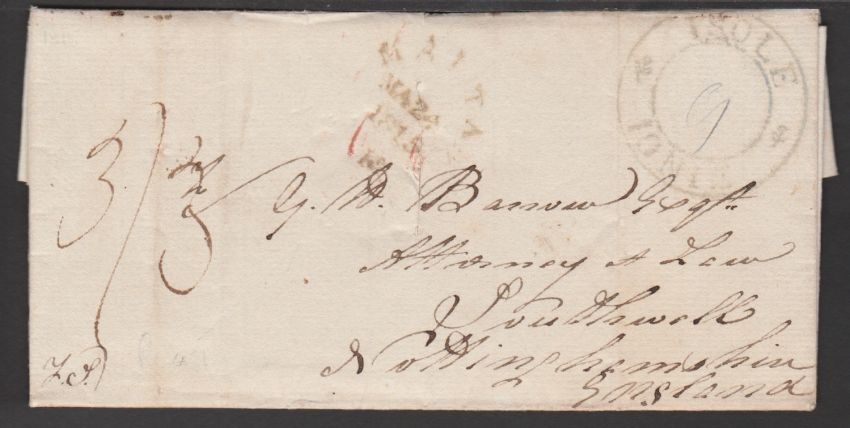 ISOLE
IONIE
9
MALTA
3/
G. H. Barrow Esqr.
Attorney at Law
Southwell
Nottinghamshire
England